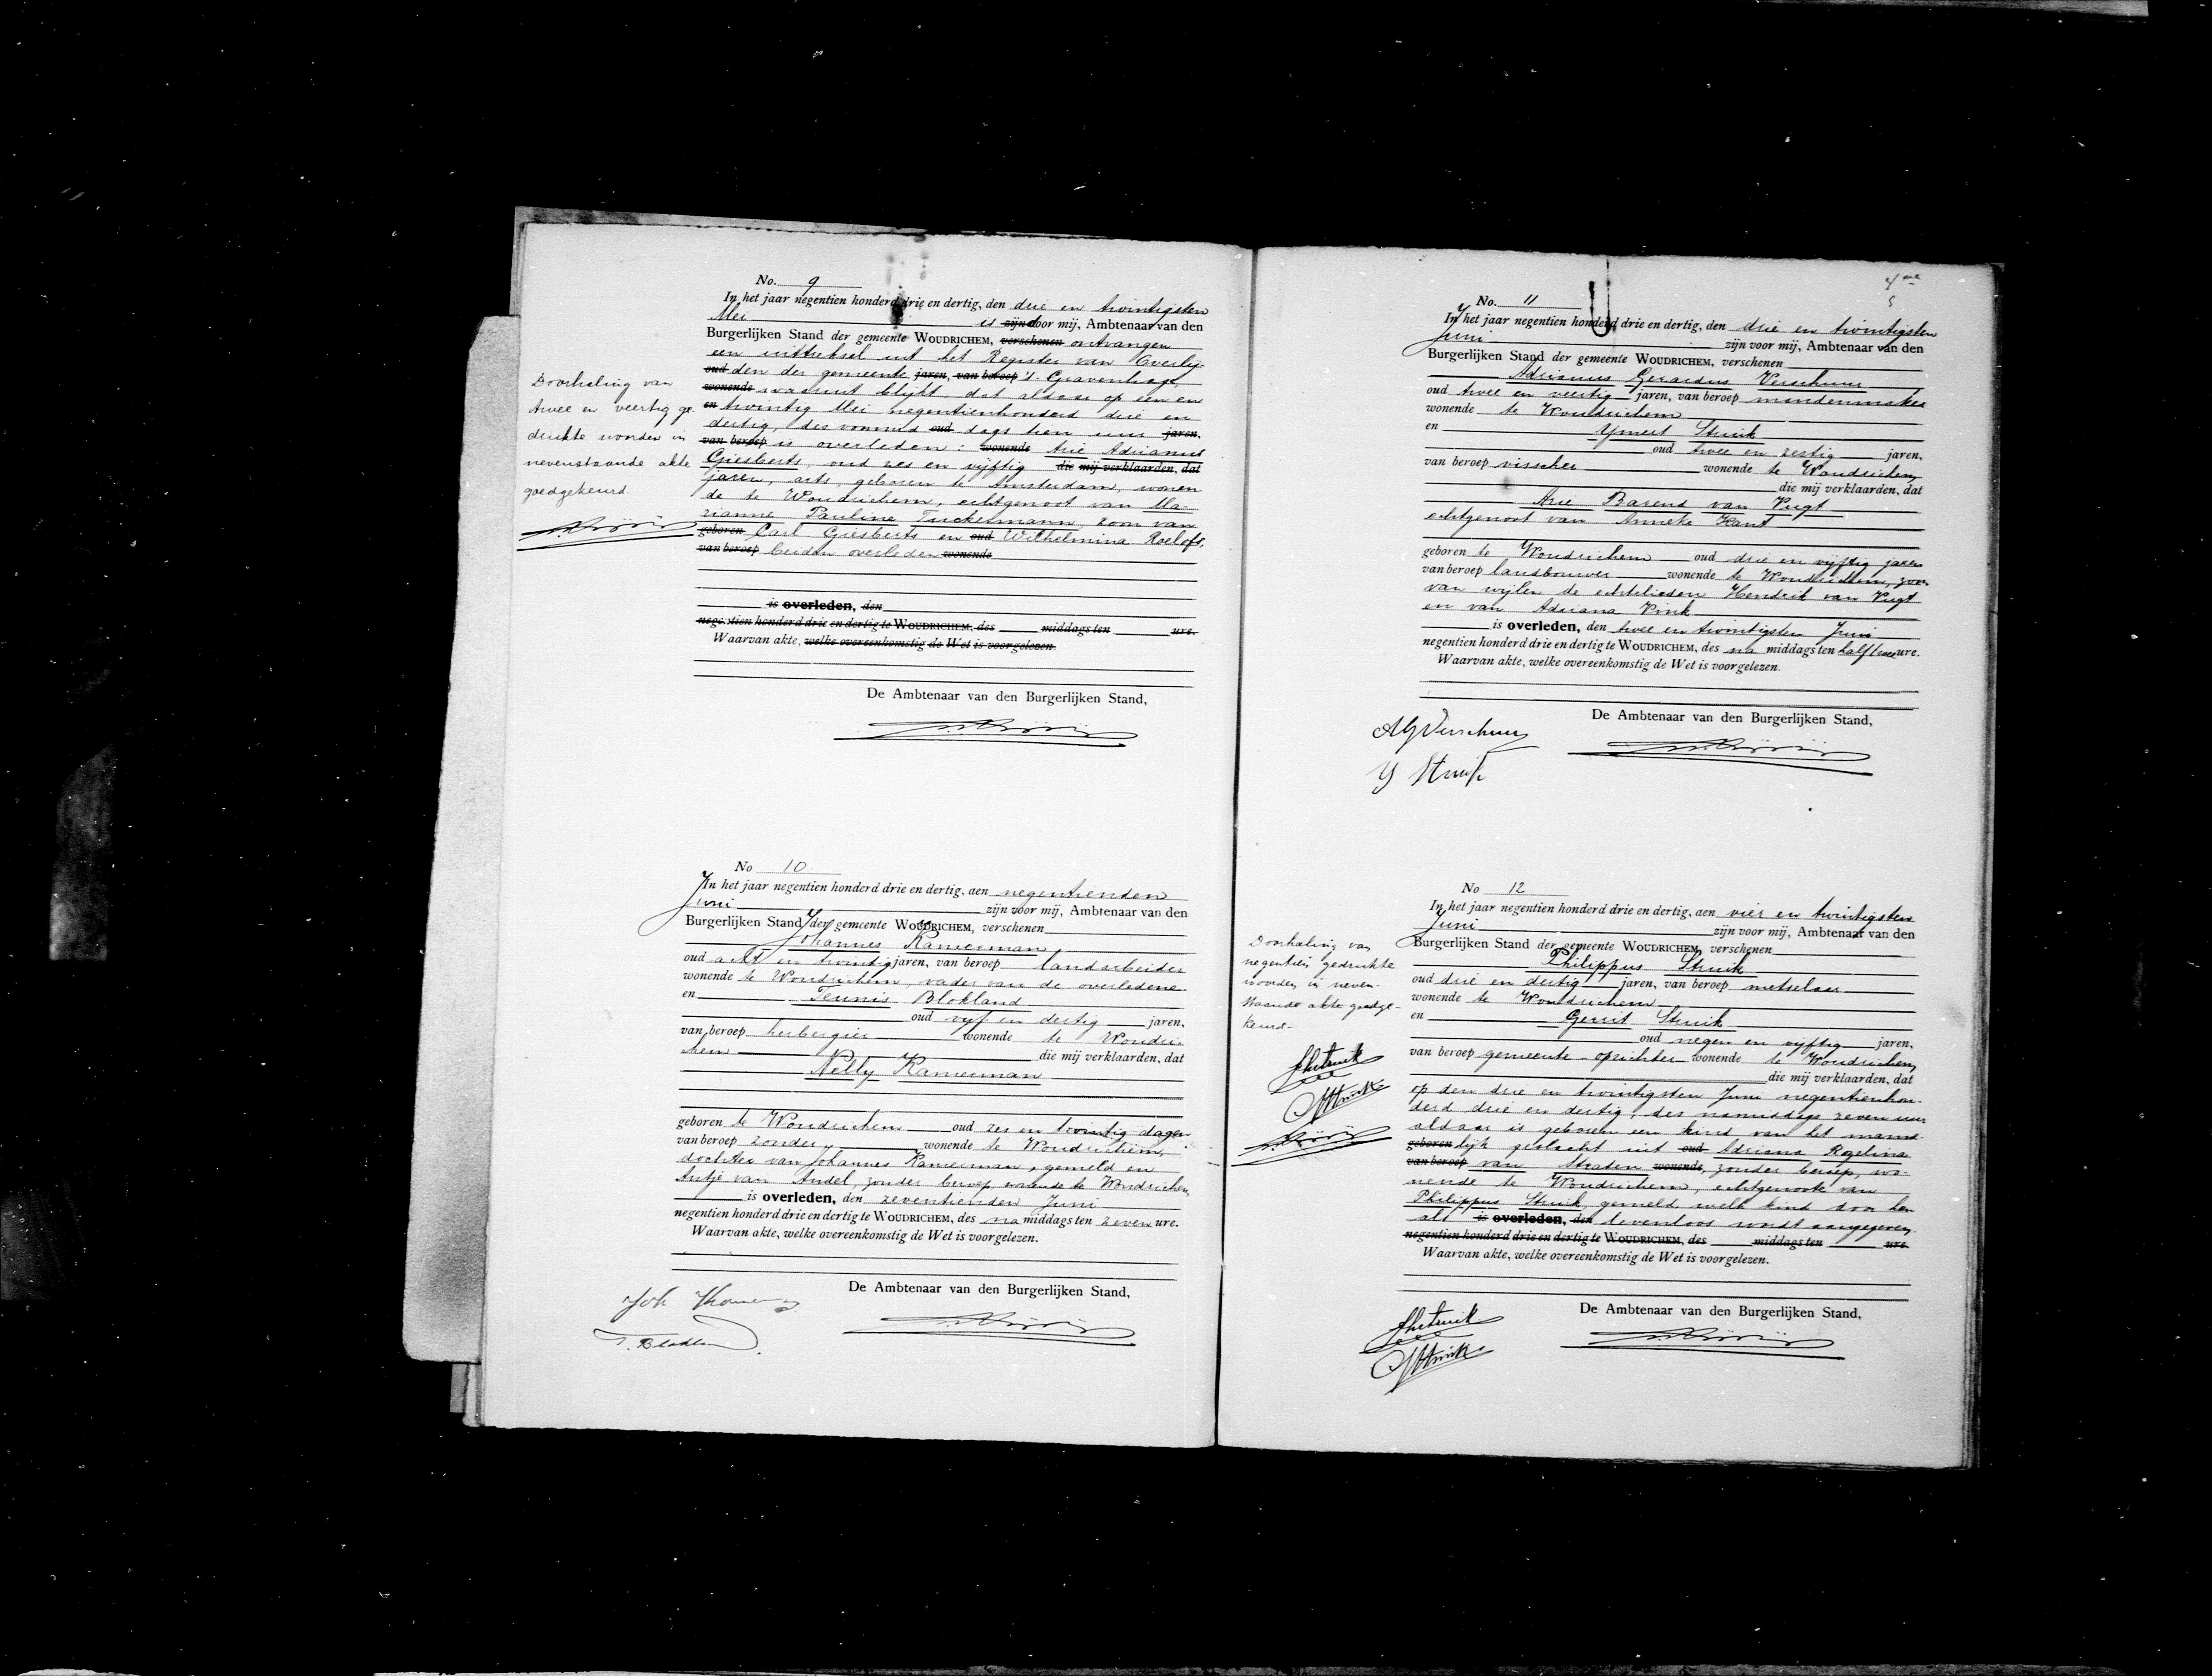 No. 9
In het jaar negentien honderd drie en dertig, den drie en twintigsten
Mei is zijn door mij, Ambtenaar van den
Burgerlijken Stand der gemeente WOUDRICHEM, verschenen ontvangen
een uittreksel uit het Register van Overlij
oud den der gemeente jaren, van beroep 's-Gravenhage,
wonende waaruit blijkt, dat aldaar op een en
en twintig Mei negentienhonderd drie en
dertig, des voormid oud dags tien uur jaren,
van beroep is overleden: wonende Arie Adrianus
Giesberts, oud zes en vijftig die mij verklaarden, dat
jaren, arts, geboren te Amsterdam, wonen
de te Woudrichem, echtgenoot van Ma-
rianne Pauline Tuckermann, zoon van
geboren Carl Giesberts en oud Wilhelmina Roelofs,
van beroep beiden overleden wonende
is overleden, den
negentien honderd drie en dertig te WOUDRICHEM, des middags ten ure.
Waarvan akte, welke overeenkomstig de Wet is voorgelezen.
De Ambtenaar van den Burgerlijken Stand,
Doorhaling van
twee en veertig ge-
drukte woorden in
nevenstaande akte
goedgekeurd
No 10
In het jaar negentien honderd drie en dertig, den negentienden
Juni zijn voor mij, Ambtenaar van den
Burgerlijken Stand der gemeente WOUDRICHEM, verschenen
Johannes Kamerman,
oud acht en twintig jaren, van beroep landarbeider
wonende te Woudrichem, vader van de overledene
en Teunis Blokland
oud vijf en dertig jaren,
van beroep herbergier wonende te Woudri-
chem die mij verklaarden, dat
Nelly Kamerman
geboren te Woudrichem oud zes en twintig dagen
van beroep zonder, wonende te Woudrichem,
dochter van Johannes Kamerman, gemeld en
Antje van Andel, zonder beroep, wonende te Woudrichem,
is overleden, den zeventienden Juni
negentien honderd drie en dertig te WOUDRICHEM, des na middags ten zeven ure.
Waarvan akte, welke overeenkomstig de Wet is voorgelezen.
De Ambtenaar van den Burgerlijken Stand,
Joh
T. Blokland
No. 11
In het jaar negentien honderd drie en dertig, den drie en twintigsten
Juni zijn voor mij, Ambtenaar van den
Burgerlijken Stand der gemeente WOUDRICHEM, verschenen
Adrianus Gerardus Verschuur
oud twee en veertig jaren, van beroep mandenmaker
wonende te Woudrichem
en Ymert Struik
oud twee en zestig jaren,
van beroep visscher wonende te Woudrichem,
die mij verklaarden, dat
Arie Barend van Vugt
echtgenoot van Anneke Kant
geboren te Woudrichem oud drie en vijftig jaren
van beroep landbouwer wonende te Woudrichem, zoon
van wijlen de echtelieden Hendrik van Vugt
en van Adriana Vink
is overleden, den twee en twintigsten Juni
negentien honderd drie en dertig te WOUDRICHEM, des na middags ten half twee ure.
Waarvan akte, welke overeenkomstig de Wet is voorgelezen.
De Ambtenaar van den Burgerlijken Stand,
AGVerschuur
Y Struik
No 12
In het jaar negentien honderd drie en dertig, den vier en twintigsten
Juni zijn voor mij, Ambtenaar van den
Burgerlijken Stand der gemeente WOUDRICHEM, verschenen
Philippus Struik
oud drie en dertig jaren, van beroep metselaar
wonende te Woudrichem
en Gerrit Struik
oud negen en vijftig jaren,
van beroep gemeente-opzichter wonende te Woudrichem,
die mij verklaarden, dat
op den drie en twintigsten Juni negentienhon-
derd drie en dertig, des namiddags zeven uur
aldaar is geboren een kind van het manne-
geboren lijk geslacht uit oud Adriana Rogelina
van beroep van Straten wonende, zonder beroep, wo-
nende te Woudrichem, echtgenoote van
Philippus Struik, gemeld, welk kind door hen
als is overleden, den levenloos wordt aangegeven,
negentien honderd drie en dertig te WOUDRICHEM, des middags ten ure.
Waarvan akte, welke overeenkomstig de Wet is voorgelezen.
De Ambtenaar van den Burgerlijken Stand,
PhStruik
GStruik
Doorhaling van
negentien gedrukte
woorden in neven-
staande akte goedge-
keurd.
PhStruik
GStruik